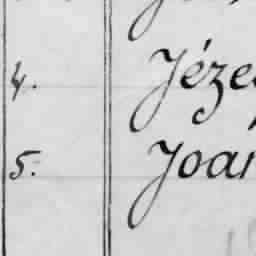 4. Józe
5. Joan